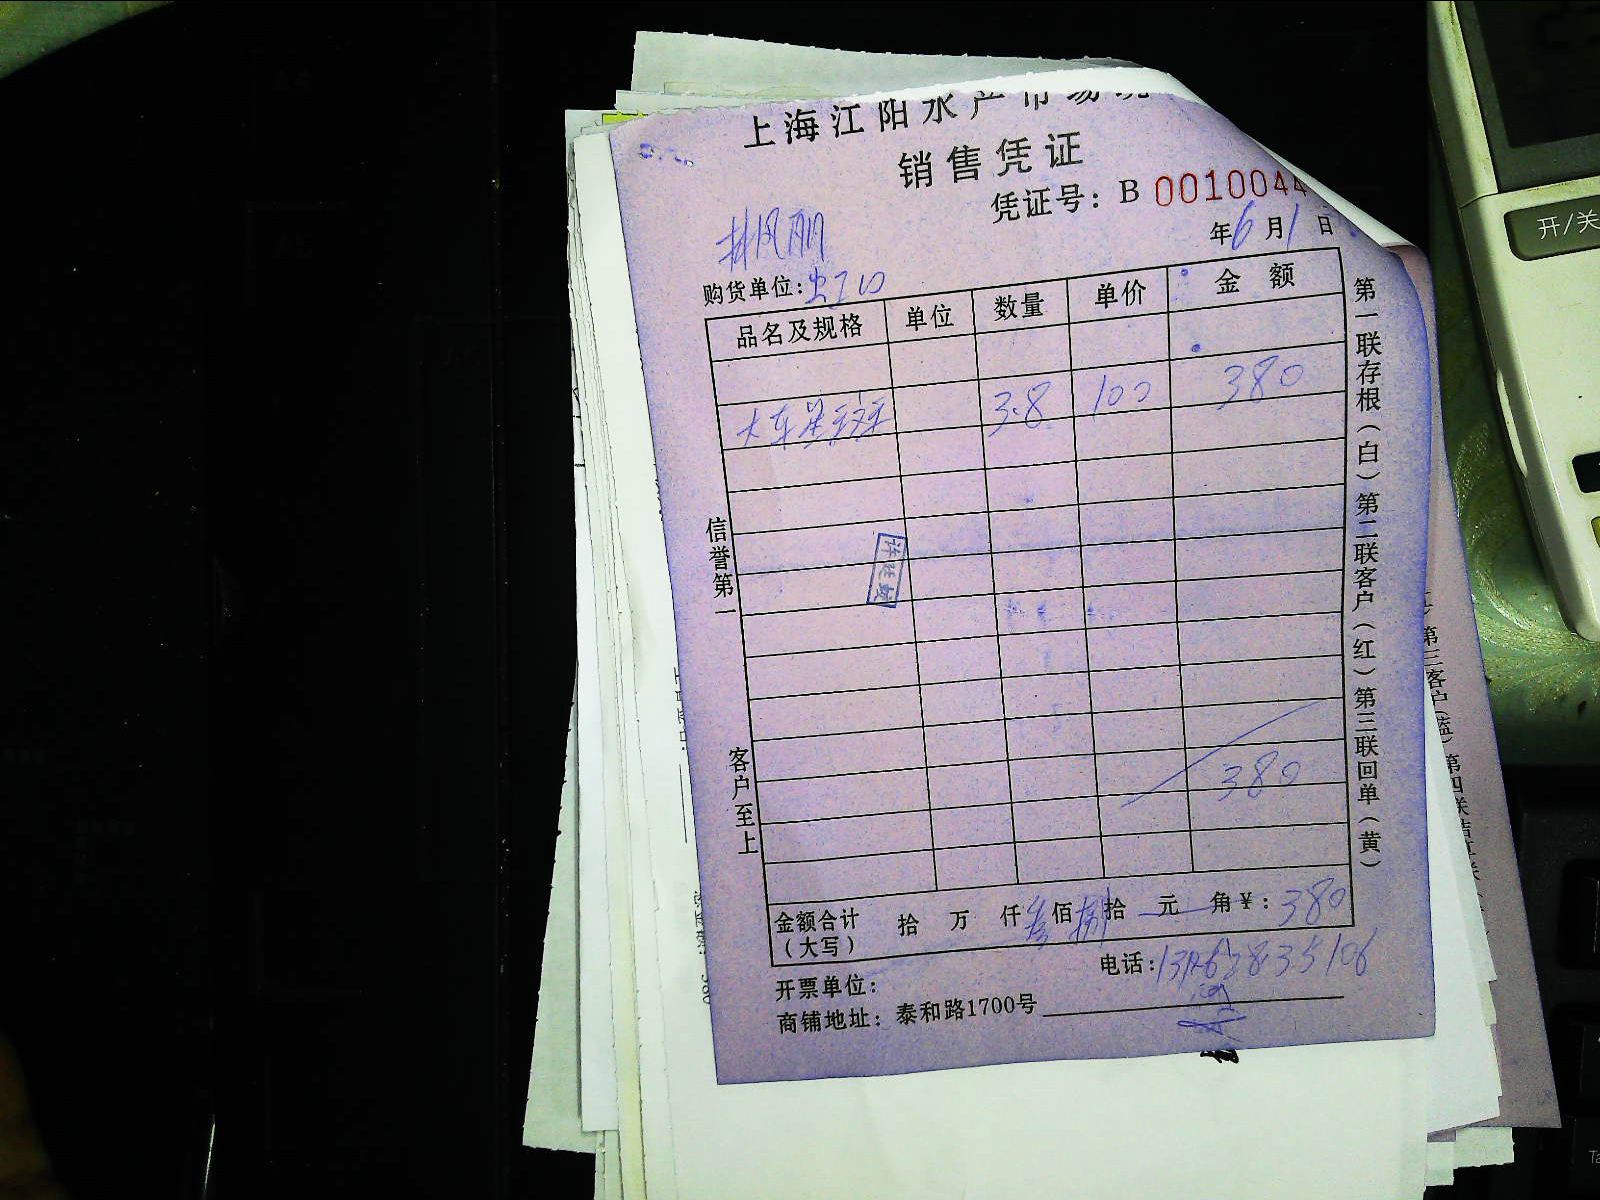 上海江阳水产市场
销售凭证
凭证号：B 0010044
年6月1日
购货单位：
品名及规格 单位 数量 单价 金额
大东星斑 3.8 100 380
380
金额合计（大写） 拾 万 仟叁佰捌拾 元 角￥：380
电话：
开票单位：
商铺地址：泰和路1700号
信誉第一 客户至上
第一联存根（白）第二联客户（红）第三联回单（黄）
第三客户（蓝）第四联
开/关